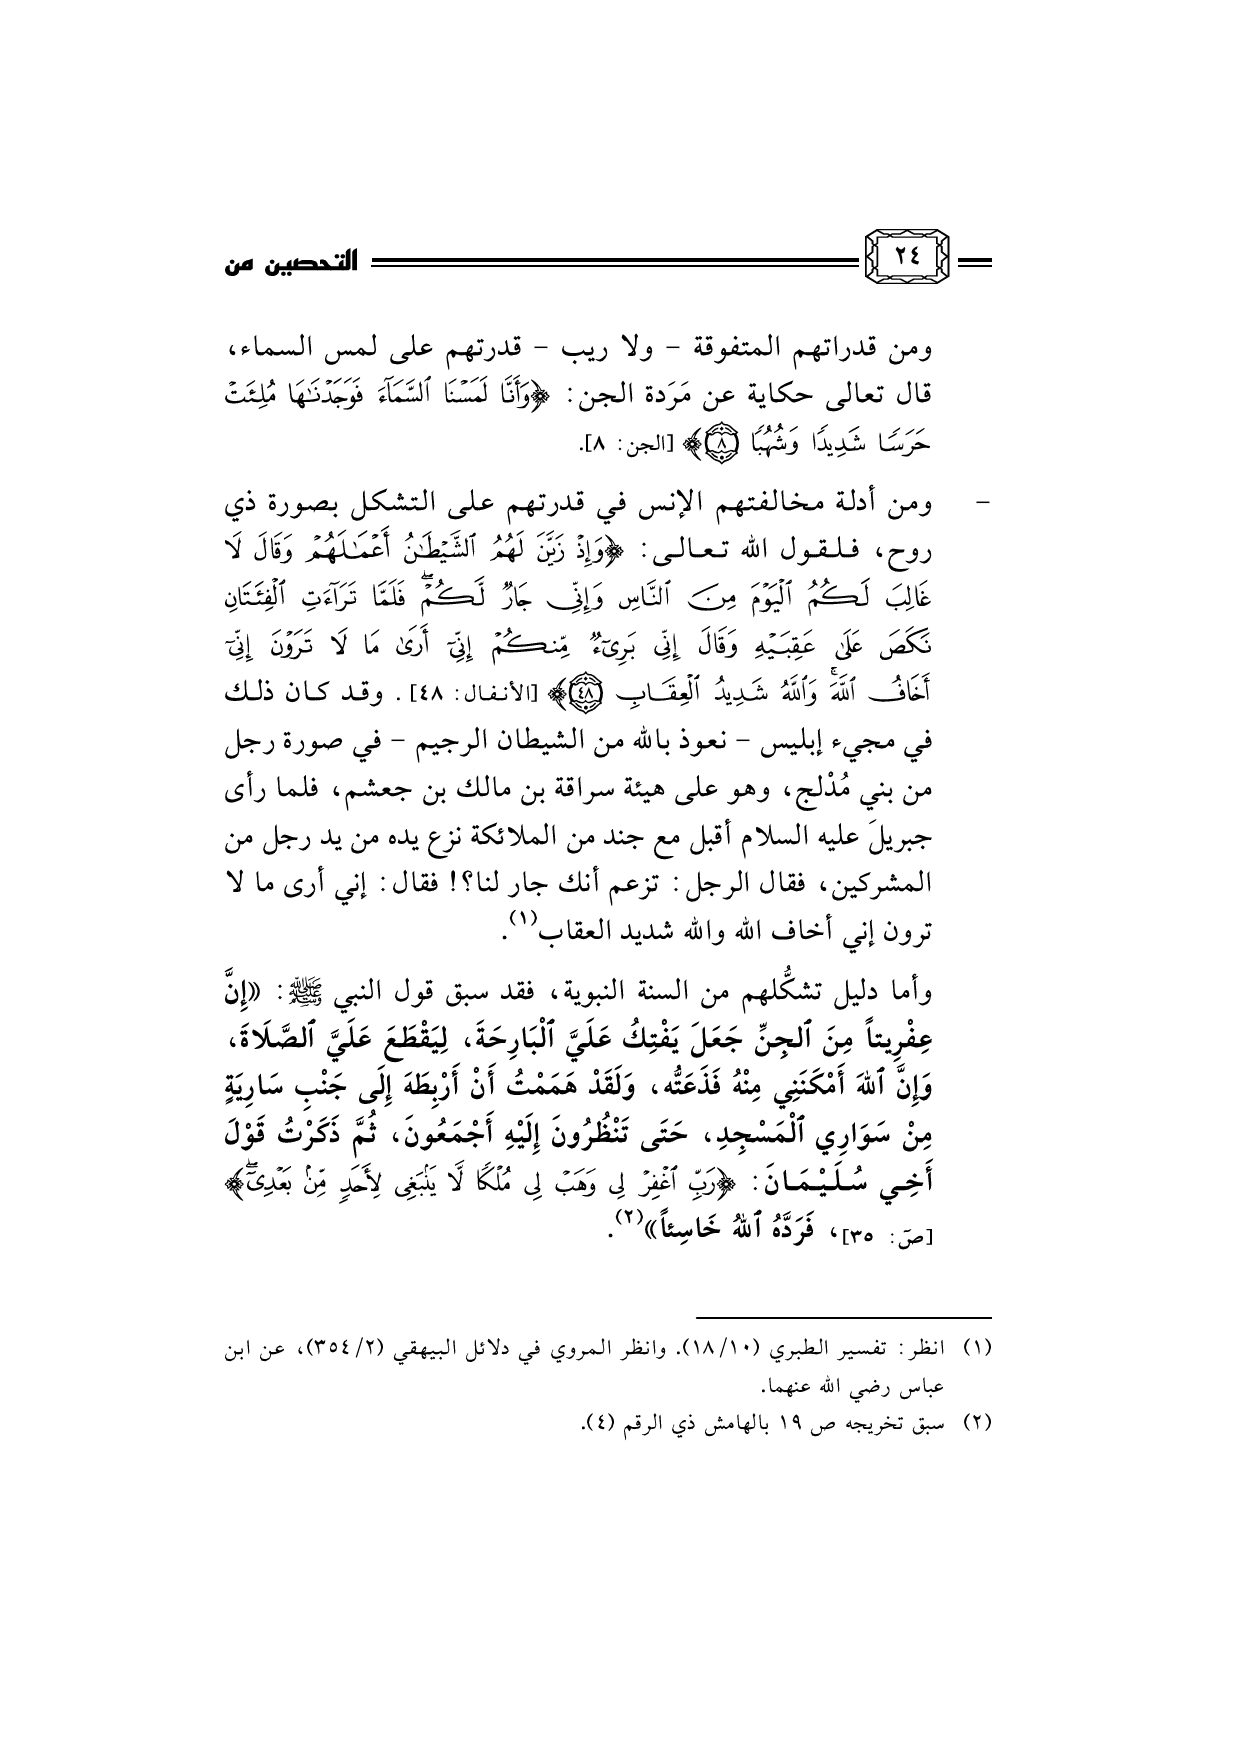 ٢٤ التحصين من
ومن قدراتهم المتفوقة - ولا ريب - قدرتهم على لمس السماء،
قال تعالى حكاية عن مَرَدة الجن: ﴿وَأَنَّا لَمَسْنَا ٱلسَّمَآءَ فَوَجَدْنَٰهَا مُلِئَتْ
حَرَسًا شَدِيدًا وَشُهُبًا ۝٨﴾ [الجن: ٨].
- ومن أدلة مخالفتهم الإنس في قدرتهم على التشكل بصورة ذي
روح، فلقول الله تعالى: ﴿وَإِذْ زَيَّنَ لَهُمُ ٱلشَّيْطَٰنُ أَعْمَٰلَهُمْ وَقَالَ لَا
غَالِبَ لَكُمُ ٱلْيَوْمَ مِنَ ٱلنَّاسِ وَإِنِّى جَارٌ لَّكُمْ ۖ فَلَمَّا تَرَآءَتِ ٱلْفِئَتَانِ
نَكَصَ عَلَىٰ عَقِبَيْهِ وَقَالَ إِنِّى بَرِىٓءٌ مِّنكُمْ إِنِّىٓ أَرَىٰ مَا لَا تَرَوْنَ إِنِّىٓ
أَخَافُ ٱللَّهَ ۚ وَٱللَّهُ شَدِيدُ ٱلْعِقَابِ ۝٤٨﴾ [الأنفال: ٤٨]. وقد كان ذلك
في مجيء إبليس - نعوذ بالله من الشيطان الرجيم - في صورة رجل
من بني مُدْلج، وهو على هيئة سراقة بن مالك بن جعشم، فلما رأى
جبريلَ عليه السلام أقبل مع جند من الملائكة نزع يده من يد رجل من
المشركين، فقال الرجل: تزعم أنك جار لنا؟! فقال: إني أرى ما لا
ترون إني أخاف الله والله شديد العقاب(١).
وأما دليل تشكُّلهم من السنة النبوية، فقد سبق قول النبي ﷺ: «إِنَّ
عِفْرِيتاً مِنَ ٱلجِنِّ جَعَلَ يَفْتِكُ عَلَيَّ ٱلْبَارِحَةَ، لِيَقْطَعَ عَلَيَّ ٱلصَّلَاةَ،
وَإِنَّ ٱللهَ أَمْكَنَنِي مِنْهُ فَذَعَتُّه، وَلَقَدْ هَمَمْتُ أَنْ أَرْبِطَهُ إِلَى جَنْبِ سَارِيَةٍ
مِنْ سَوَارِي ٱلْمَسْجِدِ، حَتَى تَنْظُرُونَ إِلَيْهِ أَجْمَعُونَ، ثُمَّ ذَكَرْتُ قَوْلَ
أَخِي سُلَيْمَانَ: ﴿رَبِّ ٱغْفِرْ لِى وَهَبْ لِى مُلْكًا لَّا يَنۢبَغِى لِأَحَدٍ مِّنۢ بَعْدِىٓ ۖ﴾
[صٓ: ٣٥]، فَرَدَّهُ ٱللهُ خَاسِئاً»(٢).
(١) انظر: تفسير الطبري (١٨/١٠). وانظر المروي في دلائل البيهقي (٣٥٤/٢)، عن ابن
عباس رضي الله عنهما.
(٢) سبق تخريجه ص ١٩ بالهامش ذي الرقم (٤).